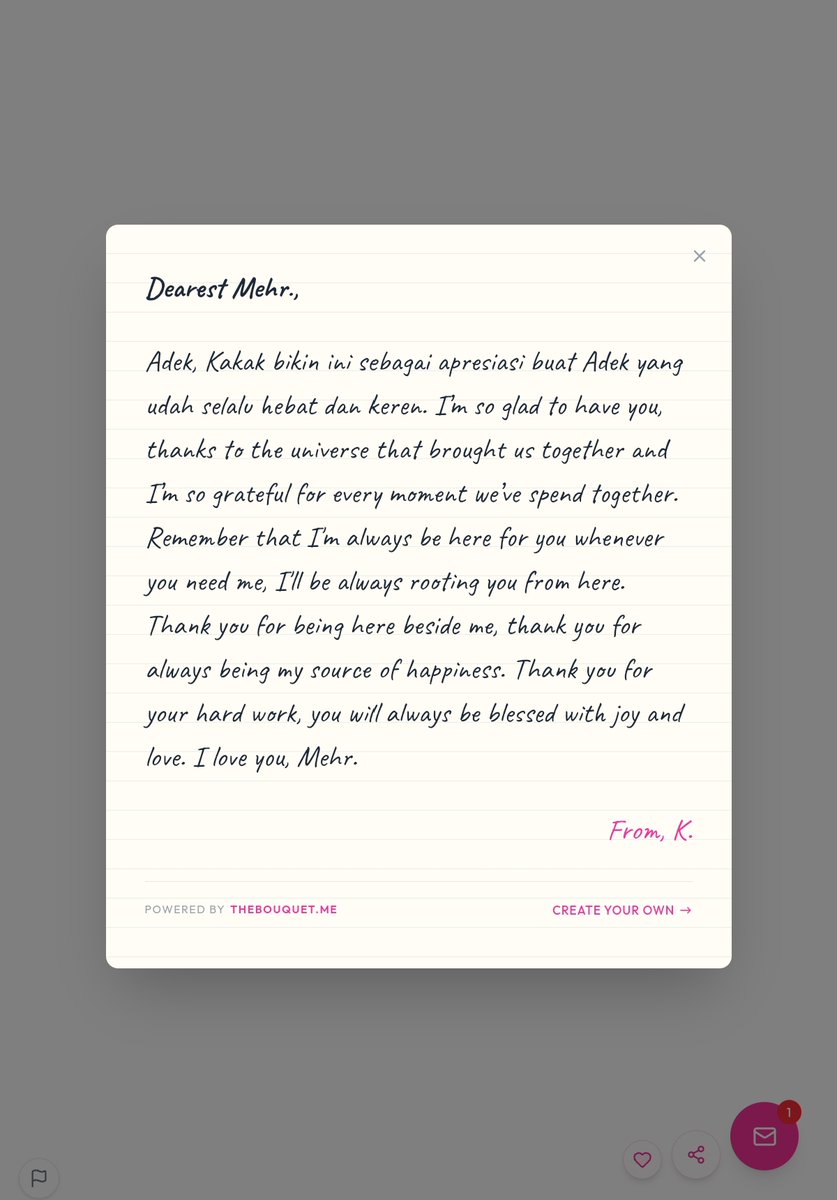 Dearest Mehr.,
Adek, Kakak bikin ini sebagai apresiasi buat Adek yang
udah selalu hebat dan keren. I'm so glad to have you,
thanks to the universe that brought us together and
I'm so grateful for every moment we've spend together.
Remember that I'm always be here for you whenever
you need me, I'll be always rooting you from here.
Thank you for being here beside me, thank you for
always being my source of happiness. Thank you for
your hard work, you will always be blessed with joy and
love. I love you, Mehr.
From, K.
POWERED BY THEBOUQUET.ME
CREATE YOUR OWN →
1